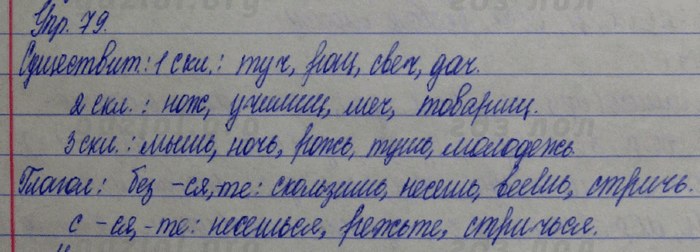 Упр. 79.
Существит.: 1 скл.: туч, рощ, свеч, дач.
2 скл.: нож, училищ, меч, товарищ.
3 скл.: мышь, ночь, рожь, тушь, молодежь.
Глагол: без -ся, -те: скользишь, несешь, веешь, стричь.
с -ся, -те: несешься, режьте, стричься.